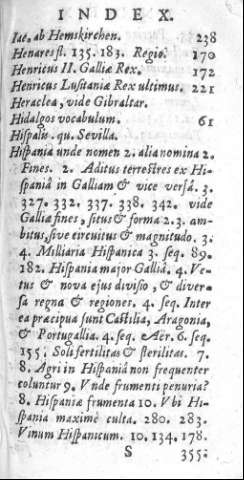 INDEX.
Iac, ab Hemskirchen. 238
Henares fl. 135. 183. Regio. 170
Henricus II. Galliæ Rex. 172
Henricus Lusitaniæ Rex ultimus. 221
Heraclea, vide Gibraltar.
Hidalgos vocabulum. 61
Hispalis. qu. Sevilla.
Hispania unde nomen 2. alia nomina 2.
Fines. 2. Aditus terrestres ex Hi-
spaniâ in Galliam & vice versâ. 3.
327. 332. 337. 338. 342. vide
Galliæ fines, situs & forma 2. 3. am-
bitus, sive circuitus & magnitudo. 3.
4. Milliaria Hispanica 3. seq. 89.
182. Hispania major Galliâ. 4. Ve-
tus & nova ejus divisio, & diver-
sa regna & regiones. 4. seq. Inter
ea præcipua sunt Castilia, Aragonia,
& Portugallia. 4. seq. eAër. 6. seq.
155. Soli fertilitas & sterilitas. 7.
8. Agri in Hispaniâ non frequenter
coluntur 9. Vnde frumenti penuria?
8. Hispaniæ frumenta 10. Vbi Hi-
spania maximè culta. 280. 283.
Vinum Hispanicum. 10. 134. 178.
S 355.